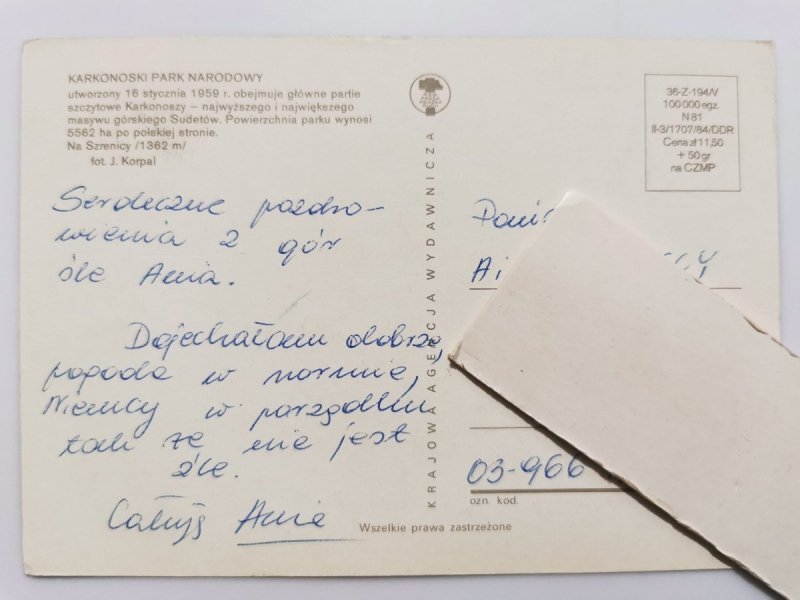 KARKONOSKI PARK NARODOWY
utworzony 16 stycznia 1959 r. obejmuje główne partie
szczytowe Karkonoszy – najwyższego i największego
masywu górskiego Sudetów. Powierzchnia parku wynosi
5562 ha po polskiej stronie.
Na Szrenicy /1362 m/
fot. J. Korpal
Serdeczne pozdro-
wienia z gór
śle Ania.
Dojechałam dobrze,
pogoda w normie,
Niemcy w porządku
tak że nie jest
źle.
Całuję Ania
KRAJOWA AGENCJA WYDAWNICZA
Wszelkie prawa zastrzeżone
36-Z-194/V
100 000 egz.
N 81
II-3/1707/84/DDR
Cena zł 11,50
+ 50 gr
na CZMP
03-966
ozn. kod.